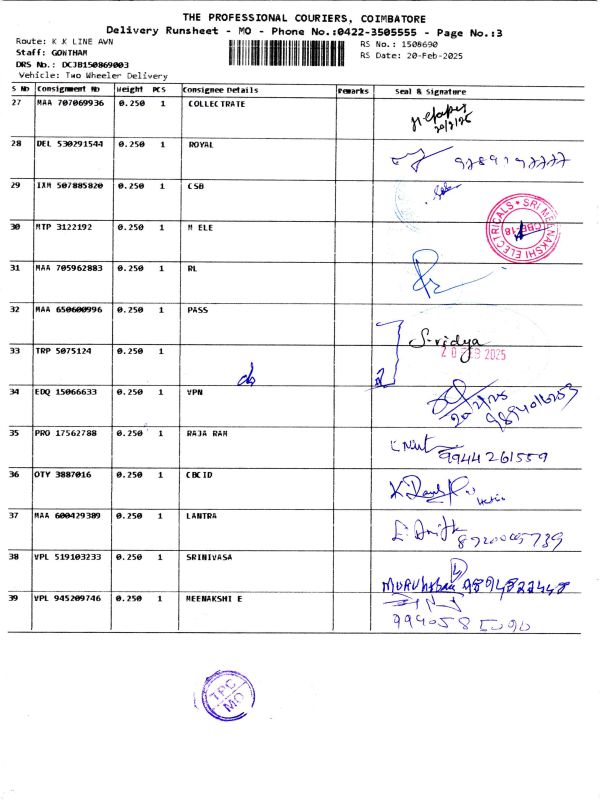 THE PROFESSIONAL COURIERS, COIMBATORE
Delivery Runsheet - MO - Phone No.:0422-3505555 - Page No.:3
Route: K K LINE AWN
RS No.: 1508690
Staff: GOWTHAM
RS Date: 20-Feb-2025
DRS No.: DCJB150869003
Vehicle: Two Wheeler Delivery
S No Consignment No Weight PCS Consignee Details Remarks Seal & Signature
27 MAA 707069936 0.250 1 COLLECTRATE
20/2/25
28 DEL 530291544 0.250 1 ROYAL
29 IXM 507885820 0.250 1 CSB
30 MTP 3122192 0.250 1 M ELE
SRI MEENAKSHI ELECTRICALS
CBE-18
31 MAA 705962883 0.250 1 RL
32 MAA 650600996 0.250 1 PASS
S-vidya
33 TRP 5075124 0.250 1
20 FEB 2025
34 EDQ 15066633 0.250 1 VPN
35 PRO 17562788 0.250 1 RAJA RAM
9944261559
36 OTY 3887016 0.250 1 CBCID
37 MAA 600429389 0.250 1 LANTRA
38 VPL 519103233 0.250 1 SRINIVASA
9894822448
39 VPL 945209746 0.250 1 MEENAKSHI E
TPC
MO